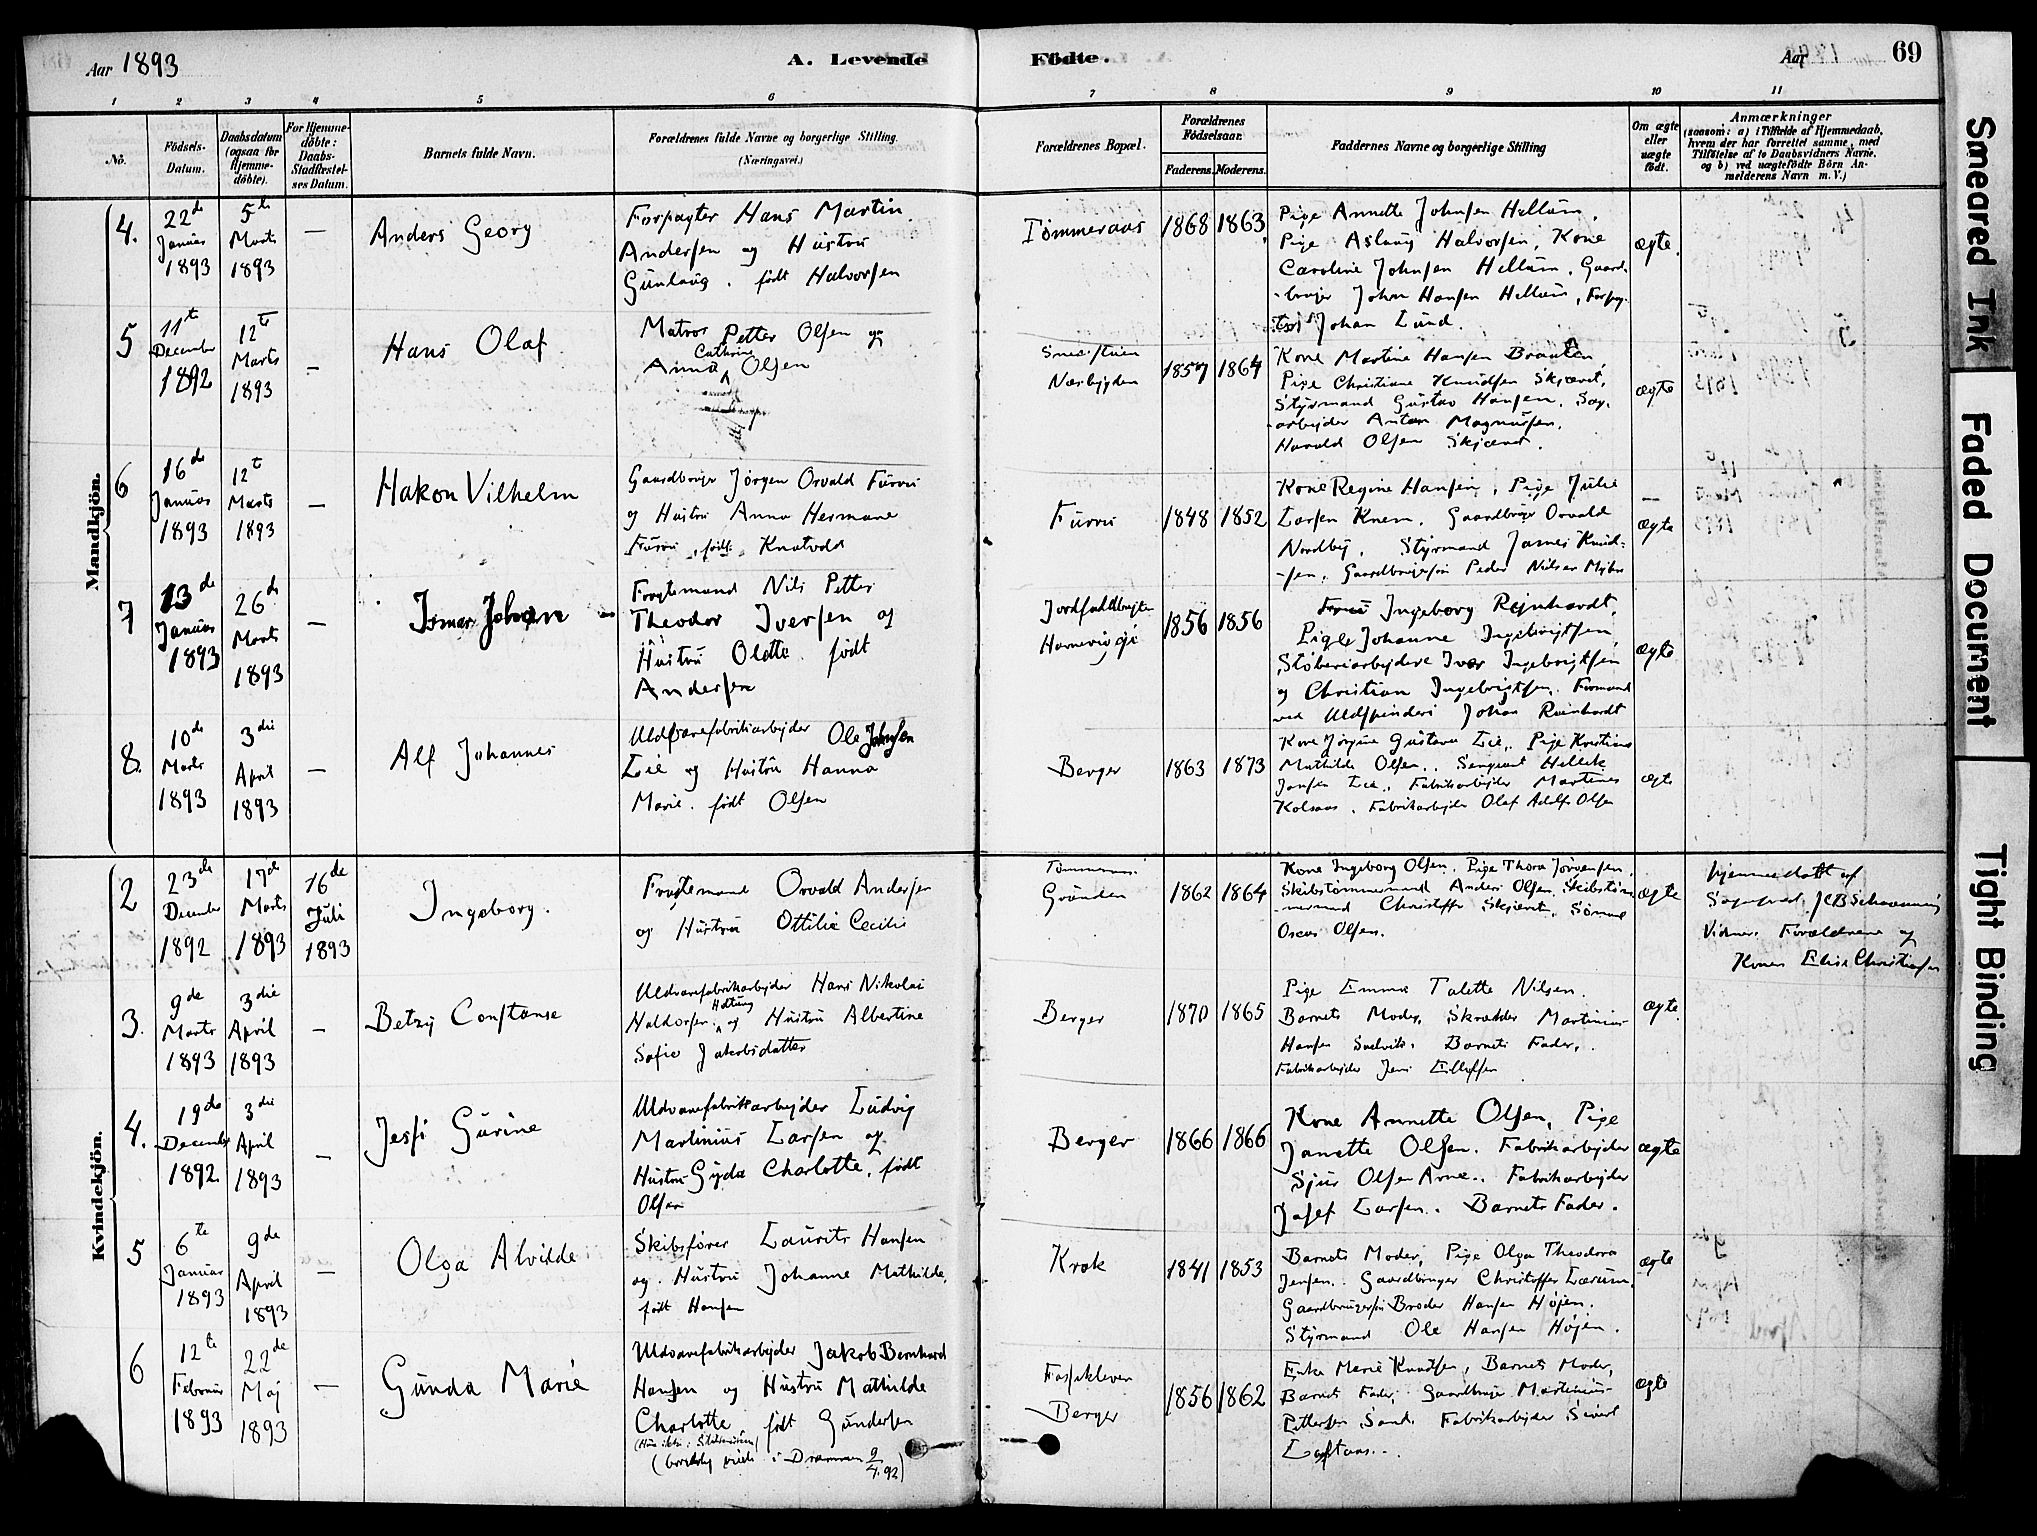 Aar 1893
A. Levende
Födte.
Aar
69
1 2 3 4 5 6 7 8 9 10 11
No.
Födsels-
Datum.
Daabsdatum
(ogsaa for
Hjemme-
döbte).
For Hjemme-
döbte:
Daabs-
Stadfæstel-
ses Datum.
Barnets fulde Navn.
Forældrenes fulde Navne og borgerlige Stilling.
(Næringsvei.)
Forældrenes Bopæl.
Forældrenes
Födselsaar.
Faderens. Moderens.
Faddernes Navne og borgerlige Stilling
Om ægte
eller
uægte
födt.
Anmærkninger
(saasom: a) i Tilfælde af Hjemmedaab,
hvem der har forrettet samme, med
Tilföielse af to Daabsvidners Navne,
og b) ved uægtefödte Börn An-
melderens Navn m. V.)
Mandkjön.
4.
22de
Januar
1893
5te
Marts
1893
—
Anders Georg
Forpagter Hans Martin
Andersen og Hustru
Gunlaug. født Halvorsen
Tømmeraas
1868
1863
Pige Annette Johnsen Hellum,
Pige Aslaug Halvorsen, Kone
Caroline Johnsen Hellum, Gaard-
-bruger Johan Hansen Hellum, Forpag-
ter Johan Lund.
ægte.
5
11te
December
1892
12te
Marts
1893
—
Hans Olaf
Matros Petter Olsen og
Cathrine
Anna Olsen
Nærbygden
1857
1864
Kone Martine Hansen
Pige Christiane Knudsen Skjæret,
Styrmand Gustav Hansen, Sag-
-arbejder Anton Magnussen,
Harald Olsen Skjæret.
ægte
6
16de
Januar
1893
12te
Marts
1893
—
Hakon Vilhelm
Gaardbruger Jørgen Orvald Furru
og Hustru Anna Hermane
Furru, født Knatvold
Furru
1848
1852
Kone Regine Hansen, Pige Julie
Larsen Knem, Gaardbruger Orvald
Nordby, Styrmand James Knud-
-sen, Peder Nilsen
—
ægte
7
13de
Januar
1893
26de
Marts
1893
—
Ismar Johan
Fragtemand Nils Petter
Theodor Iversen og
Hustru Olette født
Andersen
1856
1856
Ingeborg Reinhardt,
Pige Johanne Ingebrigtsen,
Støberiarbejdere Iver Ingebrigtsen
og Christian Ingebrigtsen. Formand
ved Uldspinderi Johan Reinhardt
ægte
8.
10de
Marts
1893
3die
April
1893
—
Alf Johannes
Uldvarefabrikarbejder Ole Johnsen
Lie og Hustru Hanna
Marie. født Olsen
Berger
1863
1873
Kone Jørgine Gustava Lie, Pige Kristine
Mathilde Olsen, Sergeant Hellek
Jonsen Lie, Fabrikarbejder Martines
Kolsaas, Fabrikarbejder Olaf Adolf Olsen
ægte
Kvindekjön.
2
23de
December
1892
17de
Marts
1893
16de
Juli
1893
Ingeborg.
Fragtemand Orvald Andersen
og Hustru Ottilie Cecilie
Grunden
1862
1864
Kone Ingeborg Olsen, Pige Thora Jørgensen,
Skibstømmermand Anders Olsen, Skibstøm-
-mermand Christoffer Skjæret, Sømand
Oscar Olsen.
ægte
Hjemmedøbt af
Sogneprest JCB
Vidner: Forældrene og
Konen Elise Christiansen
3.
9de
Marts
1893
3die
April
1893
—
Betzy Constanse
Uldvarefabrikarbejder Hans Nikolai
Haldorsen og Hustru Albertine
Sofie Jakobsdatter
Berger
1870
1865
Pige Emma Talette Nilsen.
Barnets Moder, Skrædder Martinius
Hansen Svelvik. Barnets Fader,
Fabrikarbejder Jens Ellefsen
ægte.
4.
19de
December
1892
3die
April
1893
—
Jessi Gurine
Uldvarefabrikarbejder Ludvig
Martinius Larsen og
Hustru Gyda Charlotte, født
Olsen
Berger
1866
1866
Kone Annette Olsen, Pige
Janette Olsen. Fabrikarbejder
Sjur Olsen Arne., Fabrikarbejder
Josef Larsen. Barnets Fader.
ægte
5
6te
Januar
1893
9de
April
1893
—
Olga Alvilde
Skibsfører Laurits Hansen
og Hustru Johanne Mathilde,
født Hansen
Krok
1841
1853
Barnets Moder, Pige Olga Theodora
Jensen. Gaardbruger Christoffer Lærum,
Gaardbrugersøn Broder Hansen Højen.
Styrmand Ole Hansen Højen.
ægte
6
12te
Februar
1893
22de
Maj
1893
—
Gunda Marie
Uldvarefabrikarbejder Jakob Bernhard
Hansen og Hustru Mathilde
Charlotte født Gundersen
i Drammen 9/4.92)
Fossekleven
Berger
1856
1862
Enke Marie Knudsen, Barnets Moder,
Barnets Fader, Gaardbruger Martinius
Pettersen Sand, Fabrikarbejder Sivert
ægte
Smeared Ink
Faded Document
Tight Binding